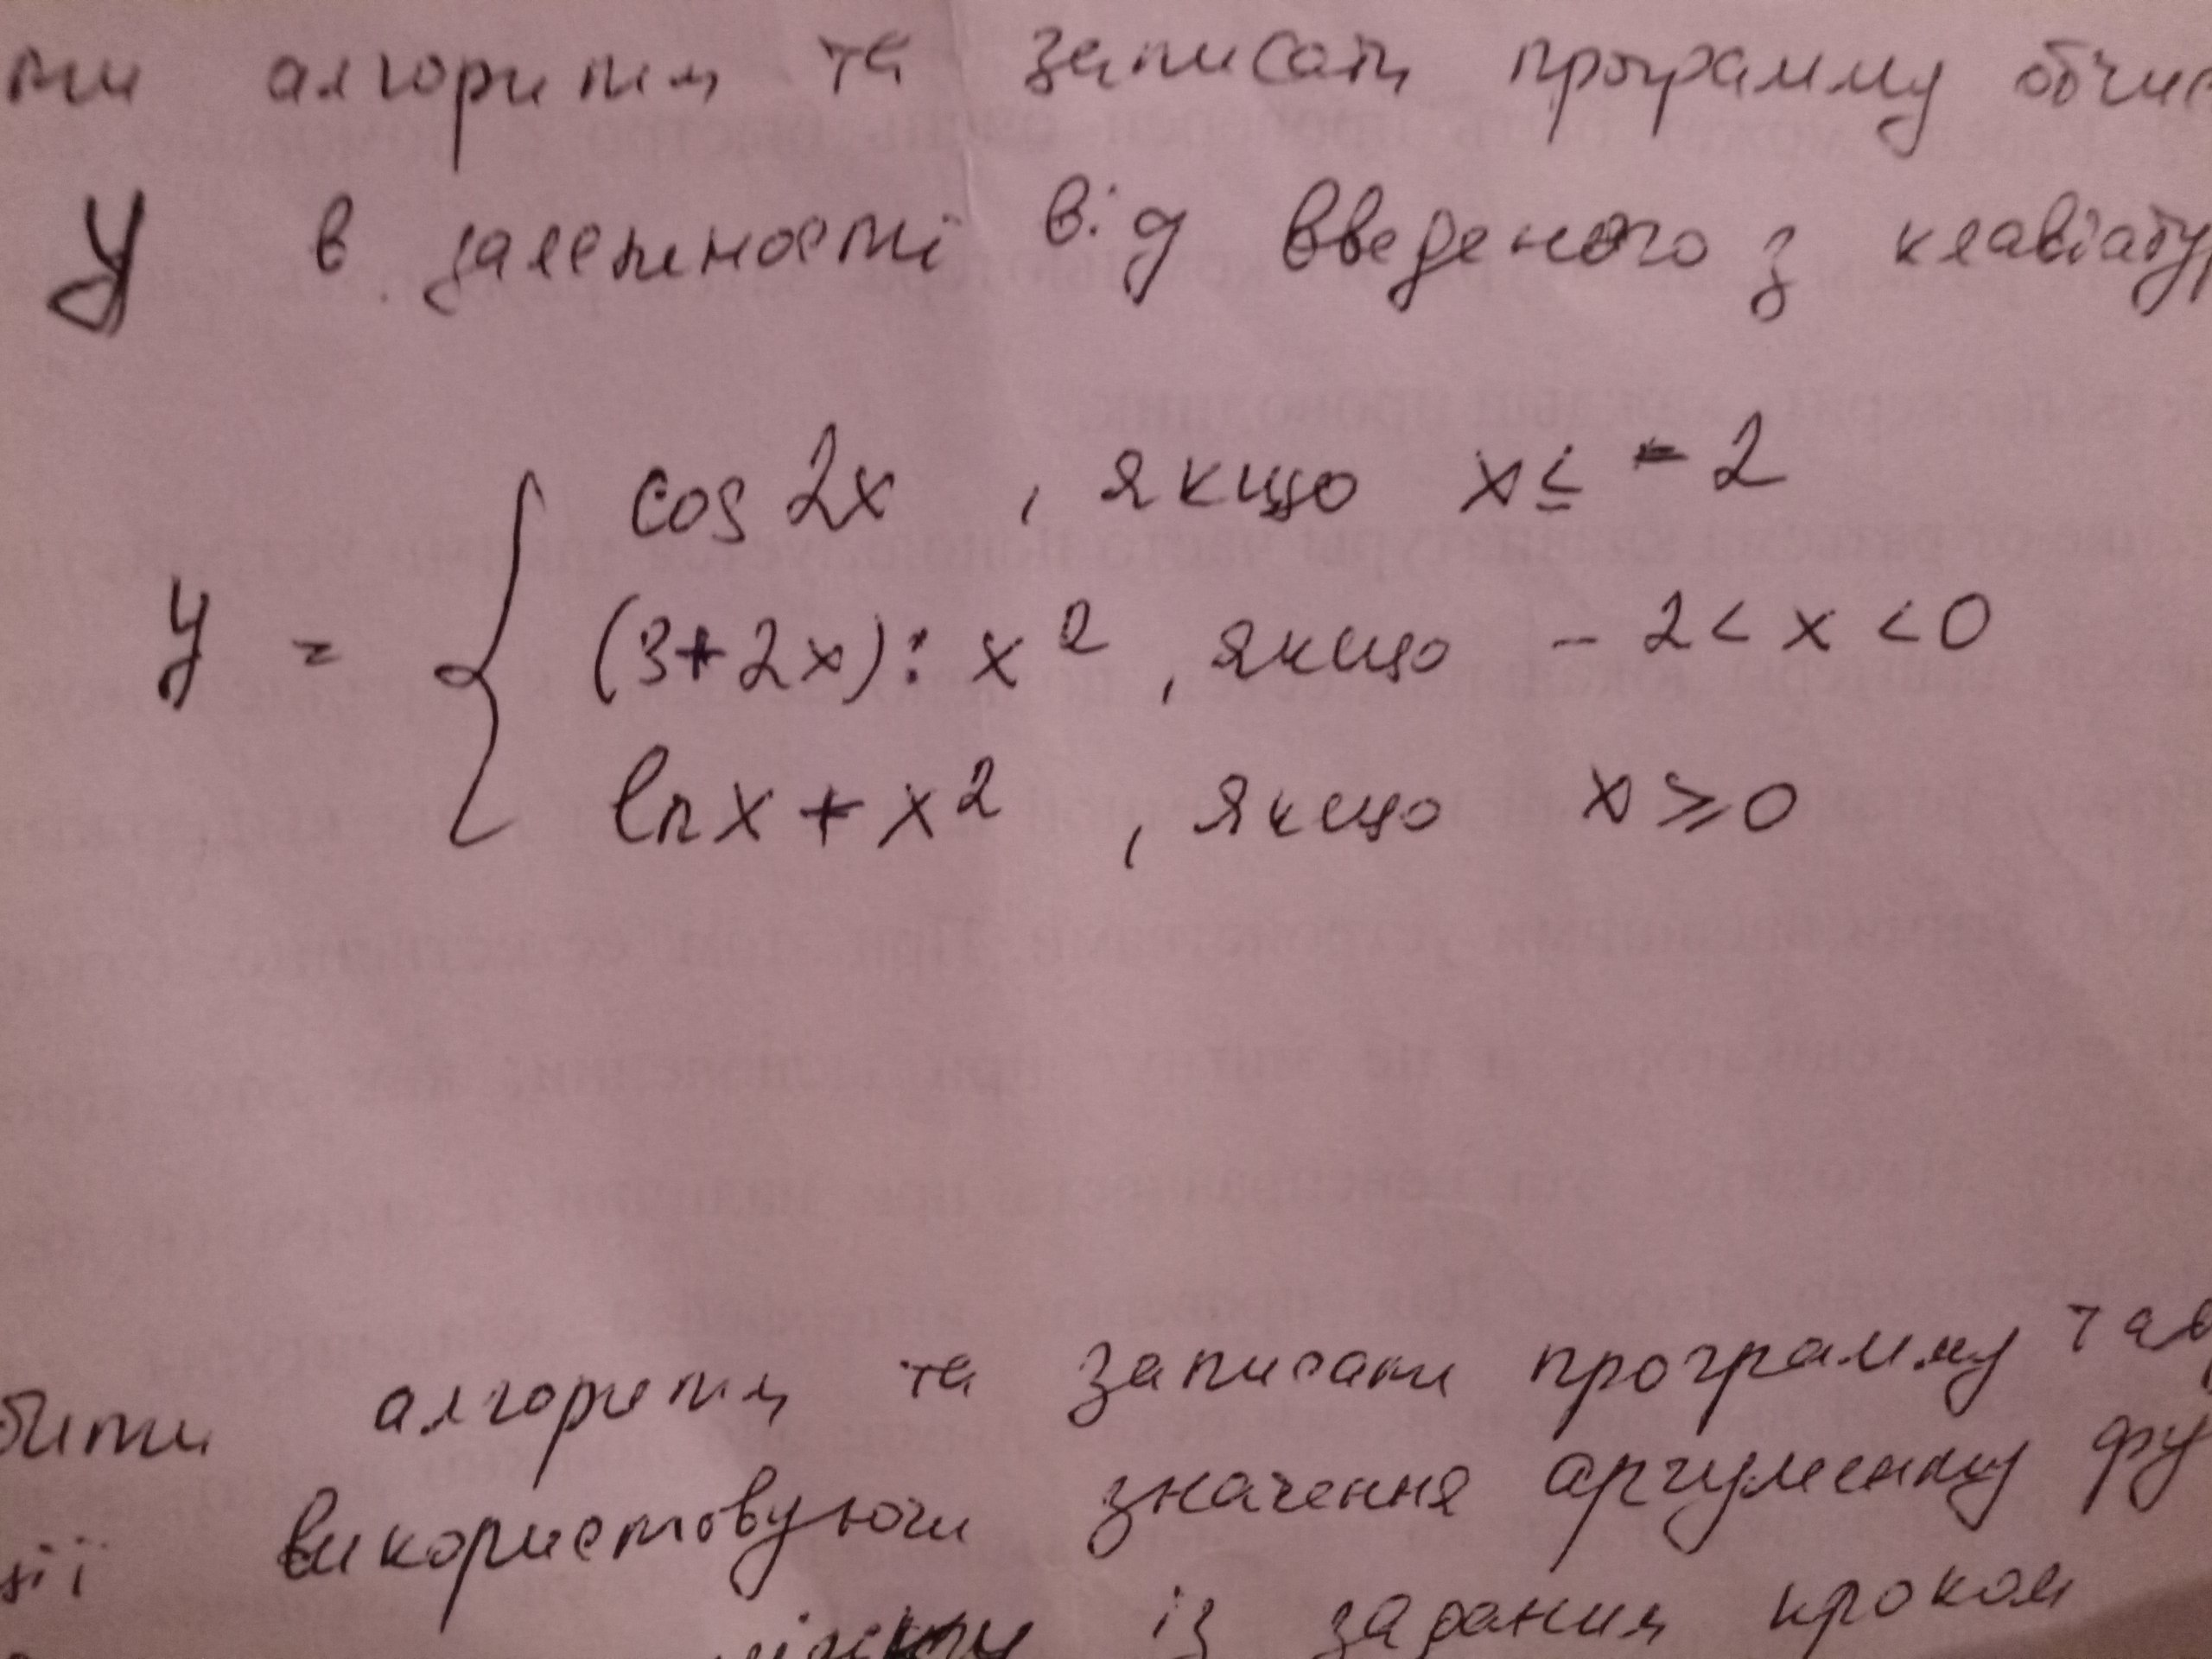 ти алгоритм та записати программу обчис
У в залежності від введеного з клавіату
y = { cos 2x , якщо x ≤ -2
(3+2x) : x² , якщо -2 < x < 0
ln x + x² , якщо x ≥ 0
бити алгоритм та записати программу таб
ії використовуючи значення аргументу фу
із заданим кроком